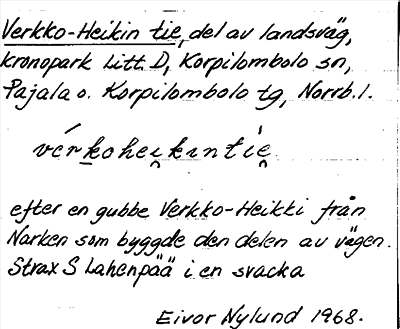 Verkko-Heikin tie, del av landsväg,
kronopark Litt. D, Korpilombolo sn,
Pajala o. Korpilombolo tg, Norrb. l.
vérkohei̯kıntíe̯
efter en gubbe Verkko-Heikki från
Narken som byggde den delen av vägen.
Strax S Lahenpää i en svacka
Eivor Nylund 1968.